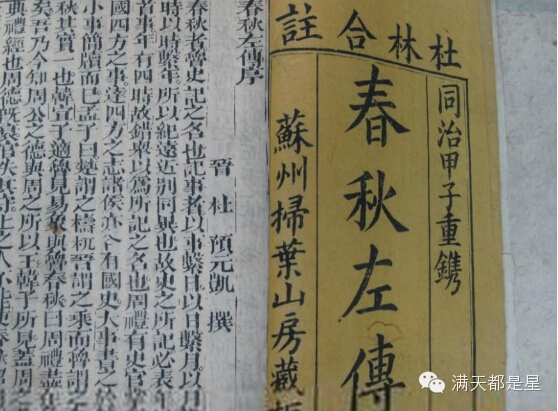 杜林合註
同治甲子重鐫
春秋左傳
蘇州掃葉山房藏
春秋左傳序
晉 杜 預元凱 撰
春秋者魯史記之名也記事者以事繫日以日繫月以月
時以時繫年所以紀遠近別同異也故史之所記必表
首事年有四時故錯舉以爲所記之名也周禮有史官
國四方之事達四方之志諸侯亦各有國史大事書之於
小事簡牘而已孟子曰楚謂之檮杌晉謂之乘而魯謂之
秋其實一也韓宣子適魯見易象與魯春秋曰周禮盡在
矣吾乃今知周公之德與周之所以王韓子所見蓋周
典禮經也周德既衰官失其守上之人不能使春秋昭
满天都是星